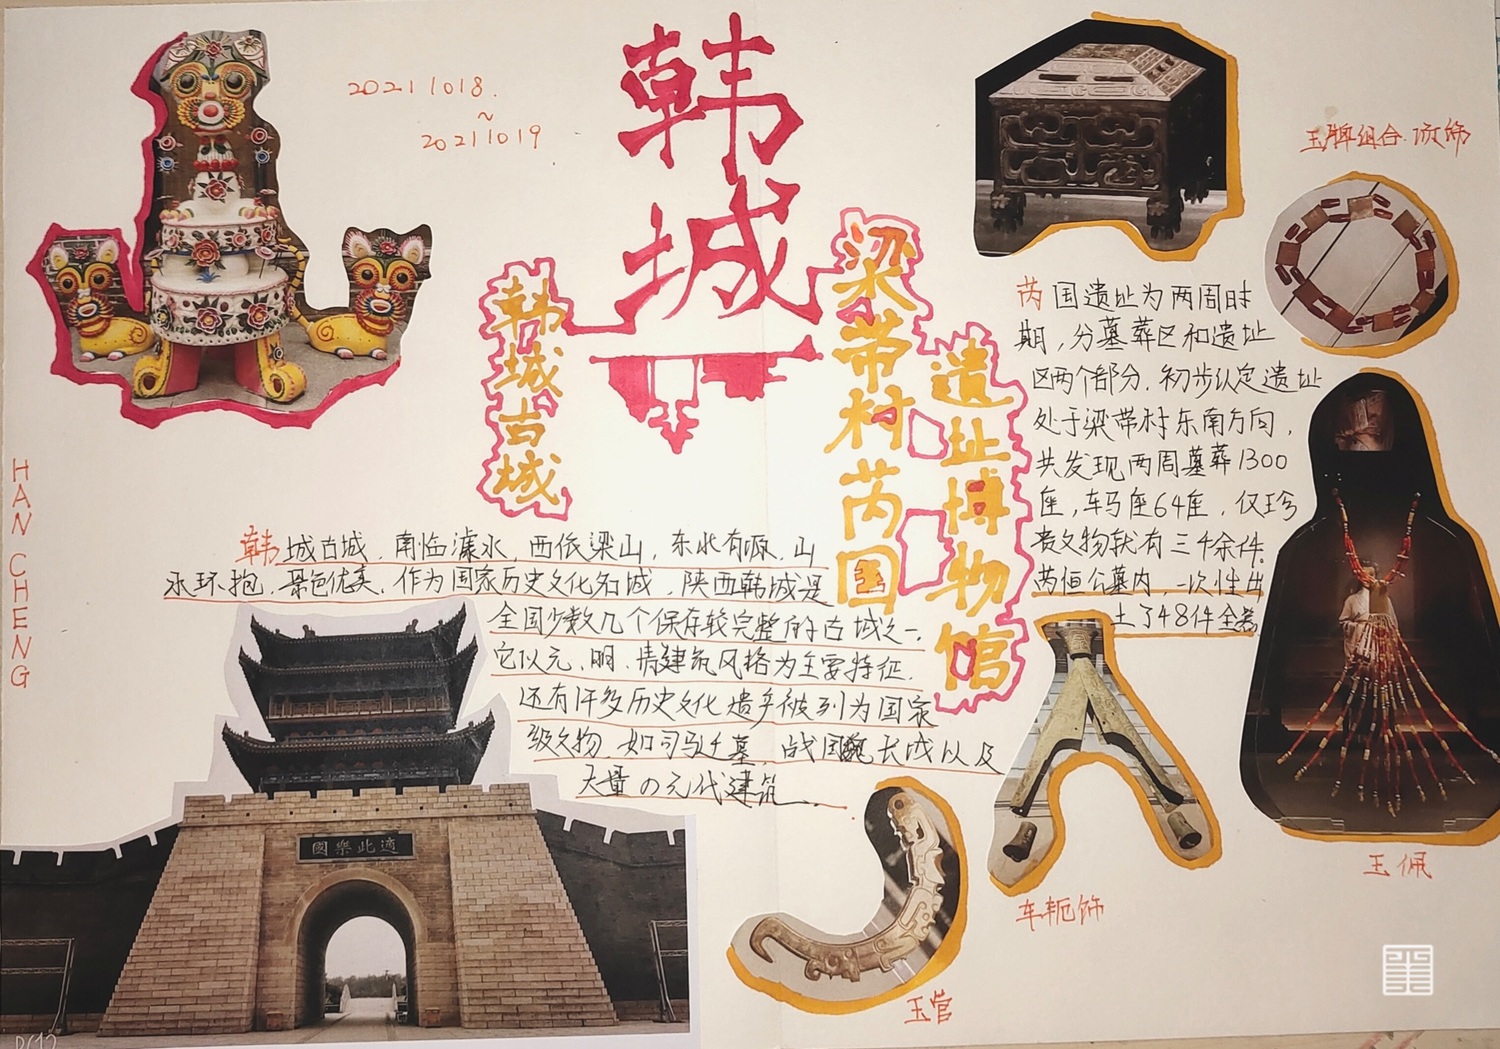 20211018.
~
20211019
韩城
韩城古城
梁带村芮国
遗址博物馆
HAN CHENG
韩城古城,南临濠水,西依梁山,东北有源,山
水环抱,景色优美,作为国家历史文化名城,陕西韩城是
全国少数几个保存较完整的古城之一,
它以元、明、清建筑风格为主要特征.
还有许多历史文化遗产被列为国家
级文物,如司马迁墓,战国魏长城以及
大量の元代建筑...
國樂此適
玉牌组合项饰
芮国遗址为两周时
期,分墓葬区和遗址
区两个部分.初步认定遗址
处于梁带村东南方向,
共发现两周墓葬1300
座,车马座64座,仅珍
贵文物就有三千余件.
芮恒公墓内,一次性出
土了48件金器
玉佩
车轭饰
玉管
P(12